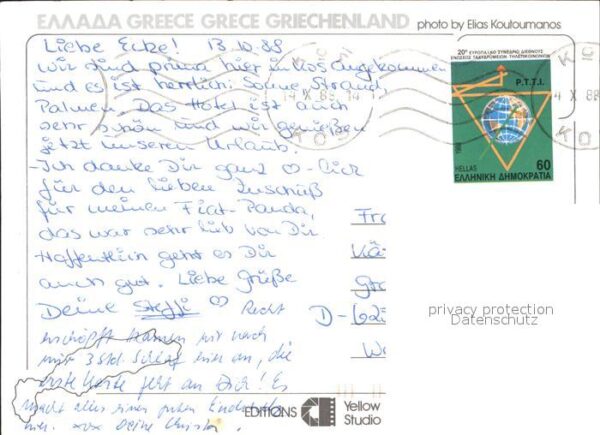 ΕΛΛΑΔΑ GREECE GRECE GRIECHENLAND
photo by Elias Koutoumanos
Liebe Ecke! 13.10.88
Wir sind prima hier in Kos angekommen
und es ist herrlich: Sonne, Strand,
Palmen. Das Hotel ist auch
sehr schön und wir genießen
jetzt unseren Urlaub.
- Ich danke Dir ganz ♡-lich
für den lieben Zuschuß
für meinen Fiat-Panda,
das war sehr lieb von Dir
Hoffentlich geht es Dir
auch gut. Liebe Grüße
Deine Steffi ♡ Recht
erschöpft kamen wir nach
nur 3 Std Schlaf hier an, die
erste Karte geht an Dich! Es
macht alles einen guten Eindruck
hier. Deine Christa
20° ΕΥΡΩΠΑΪΚΟ ΣΥΝΕΔΡΙΟ ΔΙΕΘΝΟΥΣ
ΕΝΩΣΕΩΣ ΤΑΧΥΔΡΟΜΕΙΩΝ ΤΗΛΕΠΙΚΟΙΝΩΝΙΩΝ
P.T.T.I.
1988
HELLAS 60
ΕΛΛΗΝΙΚΗ ΔΗΜΟΚΡΑΤΙΑ
14 X 88
ΚΩΣ
KOS
4 X 88
Κ
KO
Fr
D-62
privacy protection
Datenschutz
EDITIONS Yellow
Studio